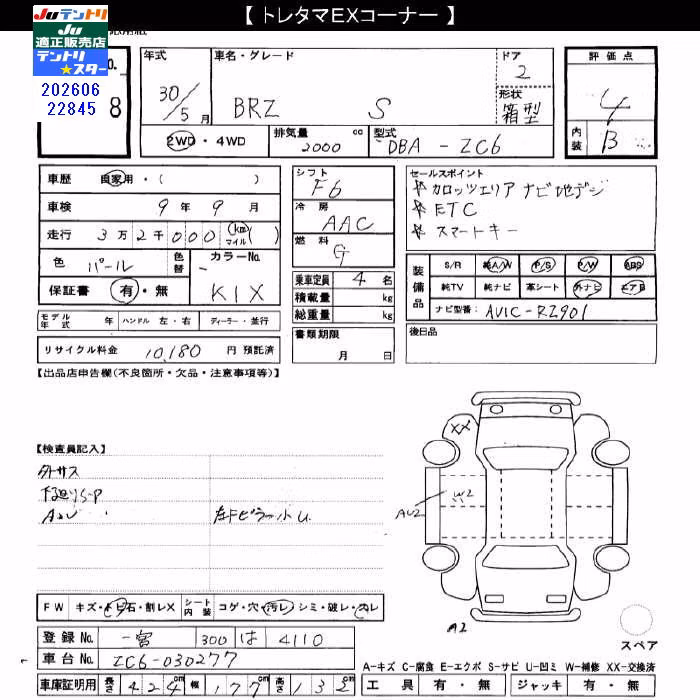 【 トレタマEXコーナー 】
Juテントリ
Ju
適正販売店
テントリ
★スター
202606
22845
8
年式
30/5 月
車名・グレード
BRZ S
ドア
2
形状
箱型
評価点
4
内装
B
2WD・4WD
排気量
2000 cc
型式
DBA - ZC6
車歴
自家用・( )
車検
9 年 9 月
走行
3万2千000 (km マイル)
色
パール
色替
カラーNo.
K1X
保証書
有・無
モデル年式
年
ハンドル 左・右
ディーラー・並行
リサイクル料金
10,180 円 預託済
シフト
F6
冷房
AAC
燃料
G
乗車定員
4 名
積載量
kg
総重量
kg
書類期限
月 日
セールスポイント
☆ カロッツェリア ナビ地デジ
☆ ETC
☆ スマートキー
装備品
S/R 純A/W P/S P/W ABS
純TV 純ナビ 革シート 外ナビ エアB
ナビ型番: AVIC-RZ901
後日品
【出品店申告欄(不良箇所・欠品・注意事項等)】
【検査員記入】
外サス
下廻りS・P
左ドピラー小U
XX
W2
AU2
A2
スペア
FW
キズ・トビ石・割レX
シート内装
コゲ・穴・汚レ・シミ・破レ・スレ
登録No.
一宮 300 は 4110
車台No.
ZC6-030277
車庫証明用
長さ 424cm
幅 177cm
高さ 132cm
A-キズ C-腐食 E-エクボ S-サビ U-凹ミ W-補修 XX-交換済
工具 有・無
ジャッキ 有・無